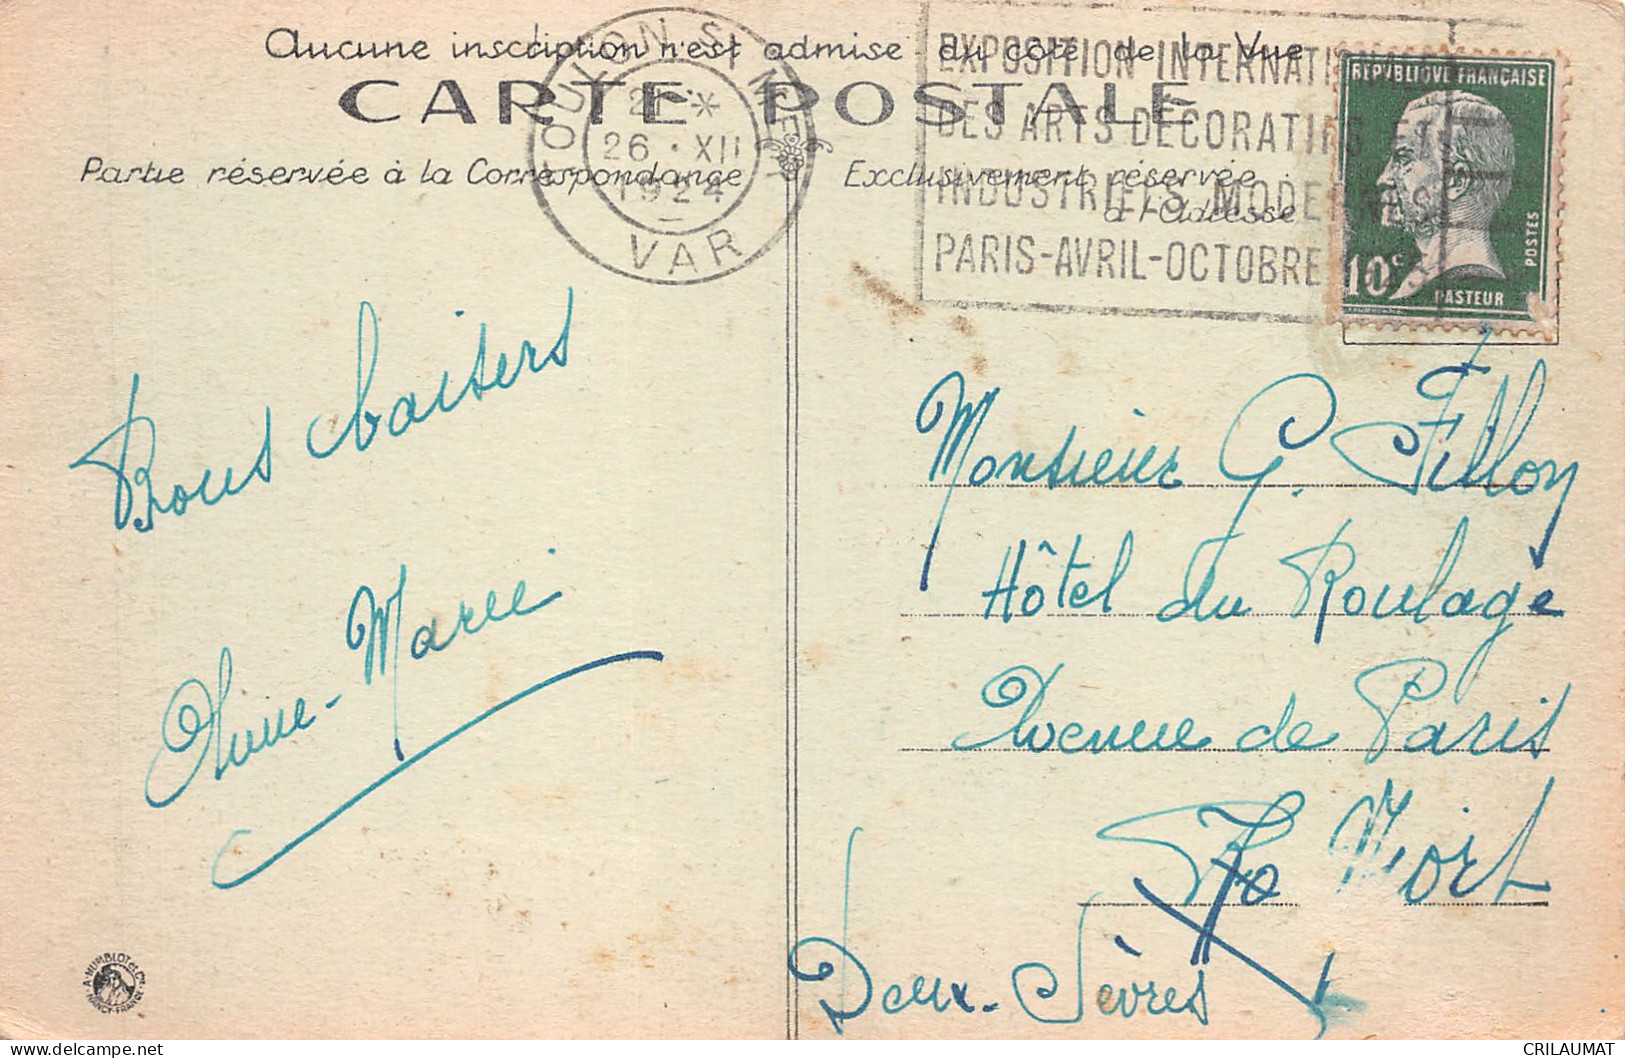 Aucune inscription n'est admise du côté de la Vue
CARTE POSTALE
Partie réservée à la Correspondance
Exclusivement réservée
à l'adresse
TOULON S MER
26 · XII
1924
VAR
EXPOSITION INTERNATI
DES ARTS DÉCORATIFS ET
INDUSTRIELS MODERNES
PARIS-AVRIL-OCTOBRE
REPVBLIQVE FRANÇAISE
POSTES
10c
PASTEUR
Bons baisers
Anne-Marie
Monsieur G. Fillon
Hôtel du Roulage
Avenue de Paris
Niort
Deux-Sèvres
A. HUMBLOT et Cie
NANCY-FRANCE
CRILAUMAT